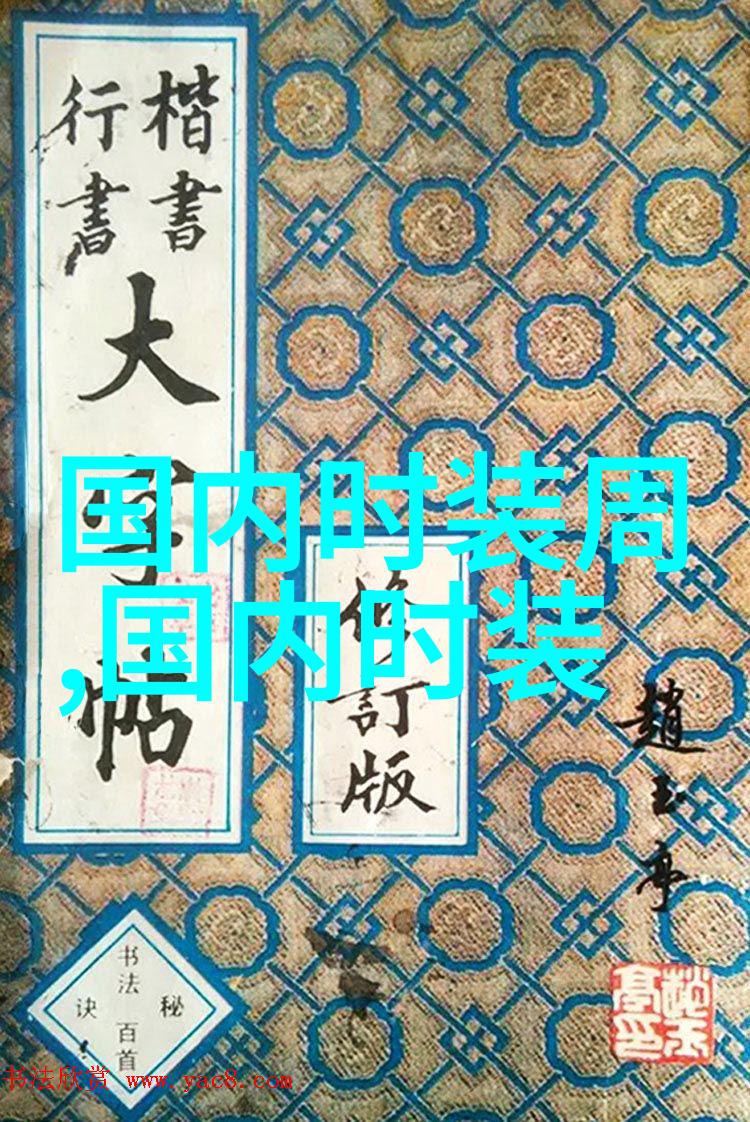 楷書
行書
大字帖
修訂版
趙玉亭
国内时装周
,国内时装
书法百首
秘诀
书法欣赏 www.yac8.com